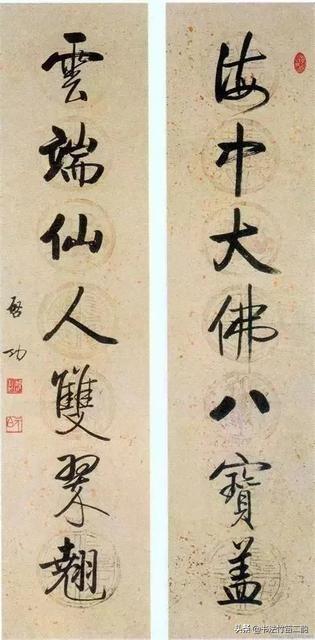 海中大佛八寶蓋
雲端仙人雙翠翹
啓功
头条 @书法竹苗二韵